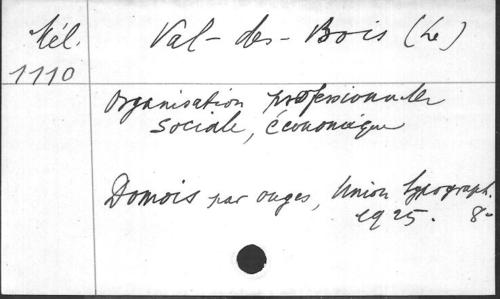 Mél.
1110
Val-des-Bois (Le)
Organisation professionnelle
sociale, économique
Domois par Ouges, Union typograph.
1925. 8°